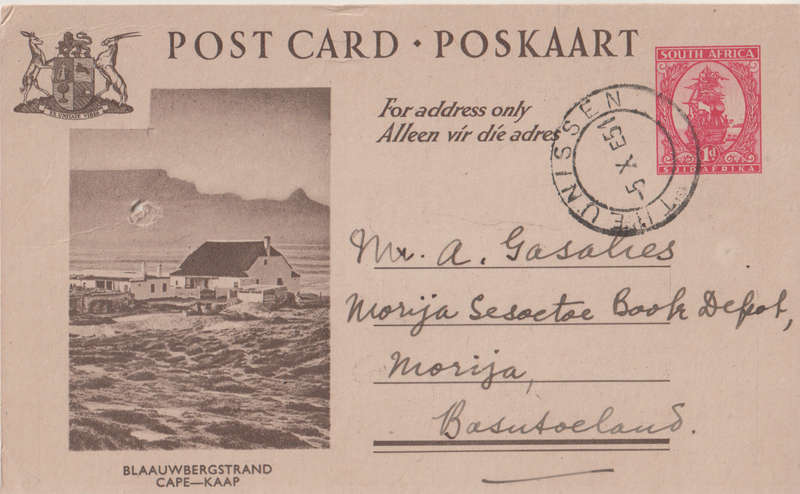 POST CARD · POSKAART
EX UNITATE VIRES
SOUTH AFRICA
For address only
Alleen vir die adres
1d
SUID-AFRIKA
THEUNISSEN
5 X E51
Mr. A. Gasalies
Morija Sesoetoe Book Depot,
Morija,
Basutoeland.
BLAAUWBERGSTRAND
CAPE—KAAP